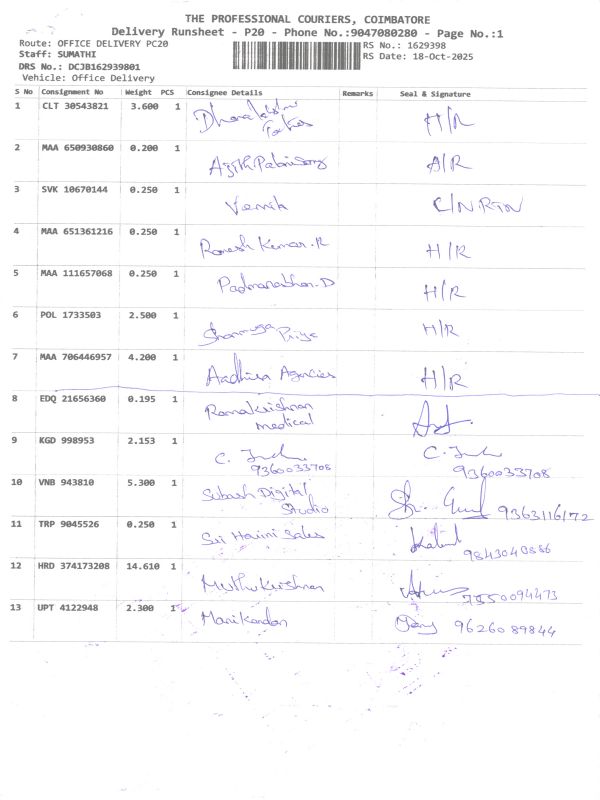 THE PROFESSIONAL COURIERS, COIMBATORE
Delivery Runsheet - P20 - Phone No.:9047080280 - Page No.:1
Route: OFFICE DELIVERY PC20 RS No.: 1629398
Staff: SUMATHI RS Date: 18-Oct-2025
DRS No.: DCJB162939801
Vehicle: Office Delivery
S No Consignment No Weight PCS Consignee Details Remarks Seal & Signature
1 CLT 30543821 3.600 1 H/R
2 MAA 650930860 0.200 1 A/R
3 SVK 10670144 0.250 1 C/N.RTN
4 MAA 651361216 0.250 1 Ramesh Kumar.R H/R
5 MAA 111657068 0.250 1 Padmanabhan.D H/R
6 POL 1733503 2.500 1 Shanmuga Priya H/R
7 MAA 706446957 4.200 1 Aadhira Agencies H/R
8 EDQ 21656360 0.195 1 Ramakrishnan
medical
9 KGD 998953 2.153 1 C.
9360033708 9360033708
10 VNB 943810 5.300 1 Subash Digital
Studio 9363116172
11 TRP 9045526 0.250 1 Sri Harini Sales
9843040886
12 HRD 374173208 14.610 1 Muthu Krishnan
7550094473
13 UPT 4122948 2.300 1 Manikandan 9626089844